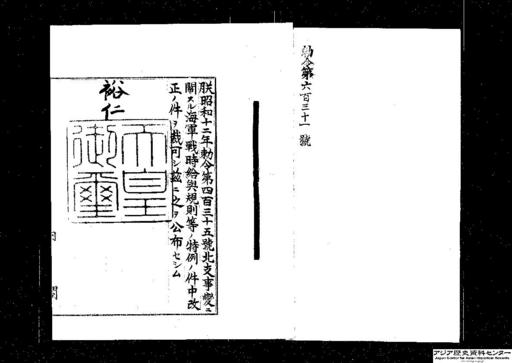 勅令第六百三十一號
朕昭和十二年勅令第四百三十五號北支事變ニ
關スル海軍戰時給與規則等ノ特例ノ件中改
正ノ件ヲ裁可シ茲ニ之ヲ公布セシム
裕仁
天皇御璽
内閣
アジア歴史資料センター
Japan Center for Asian Historical Records